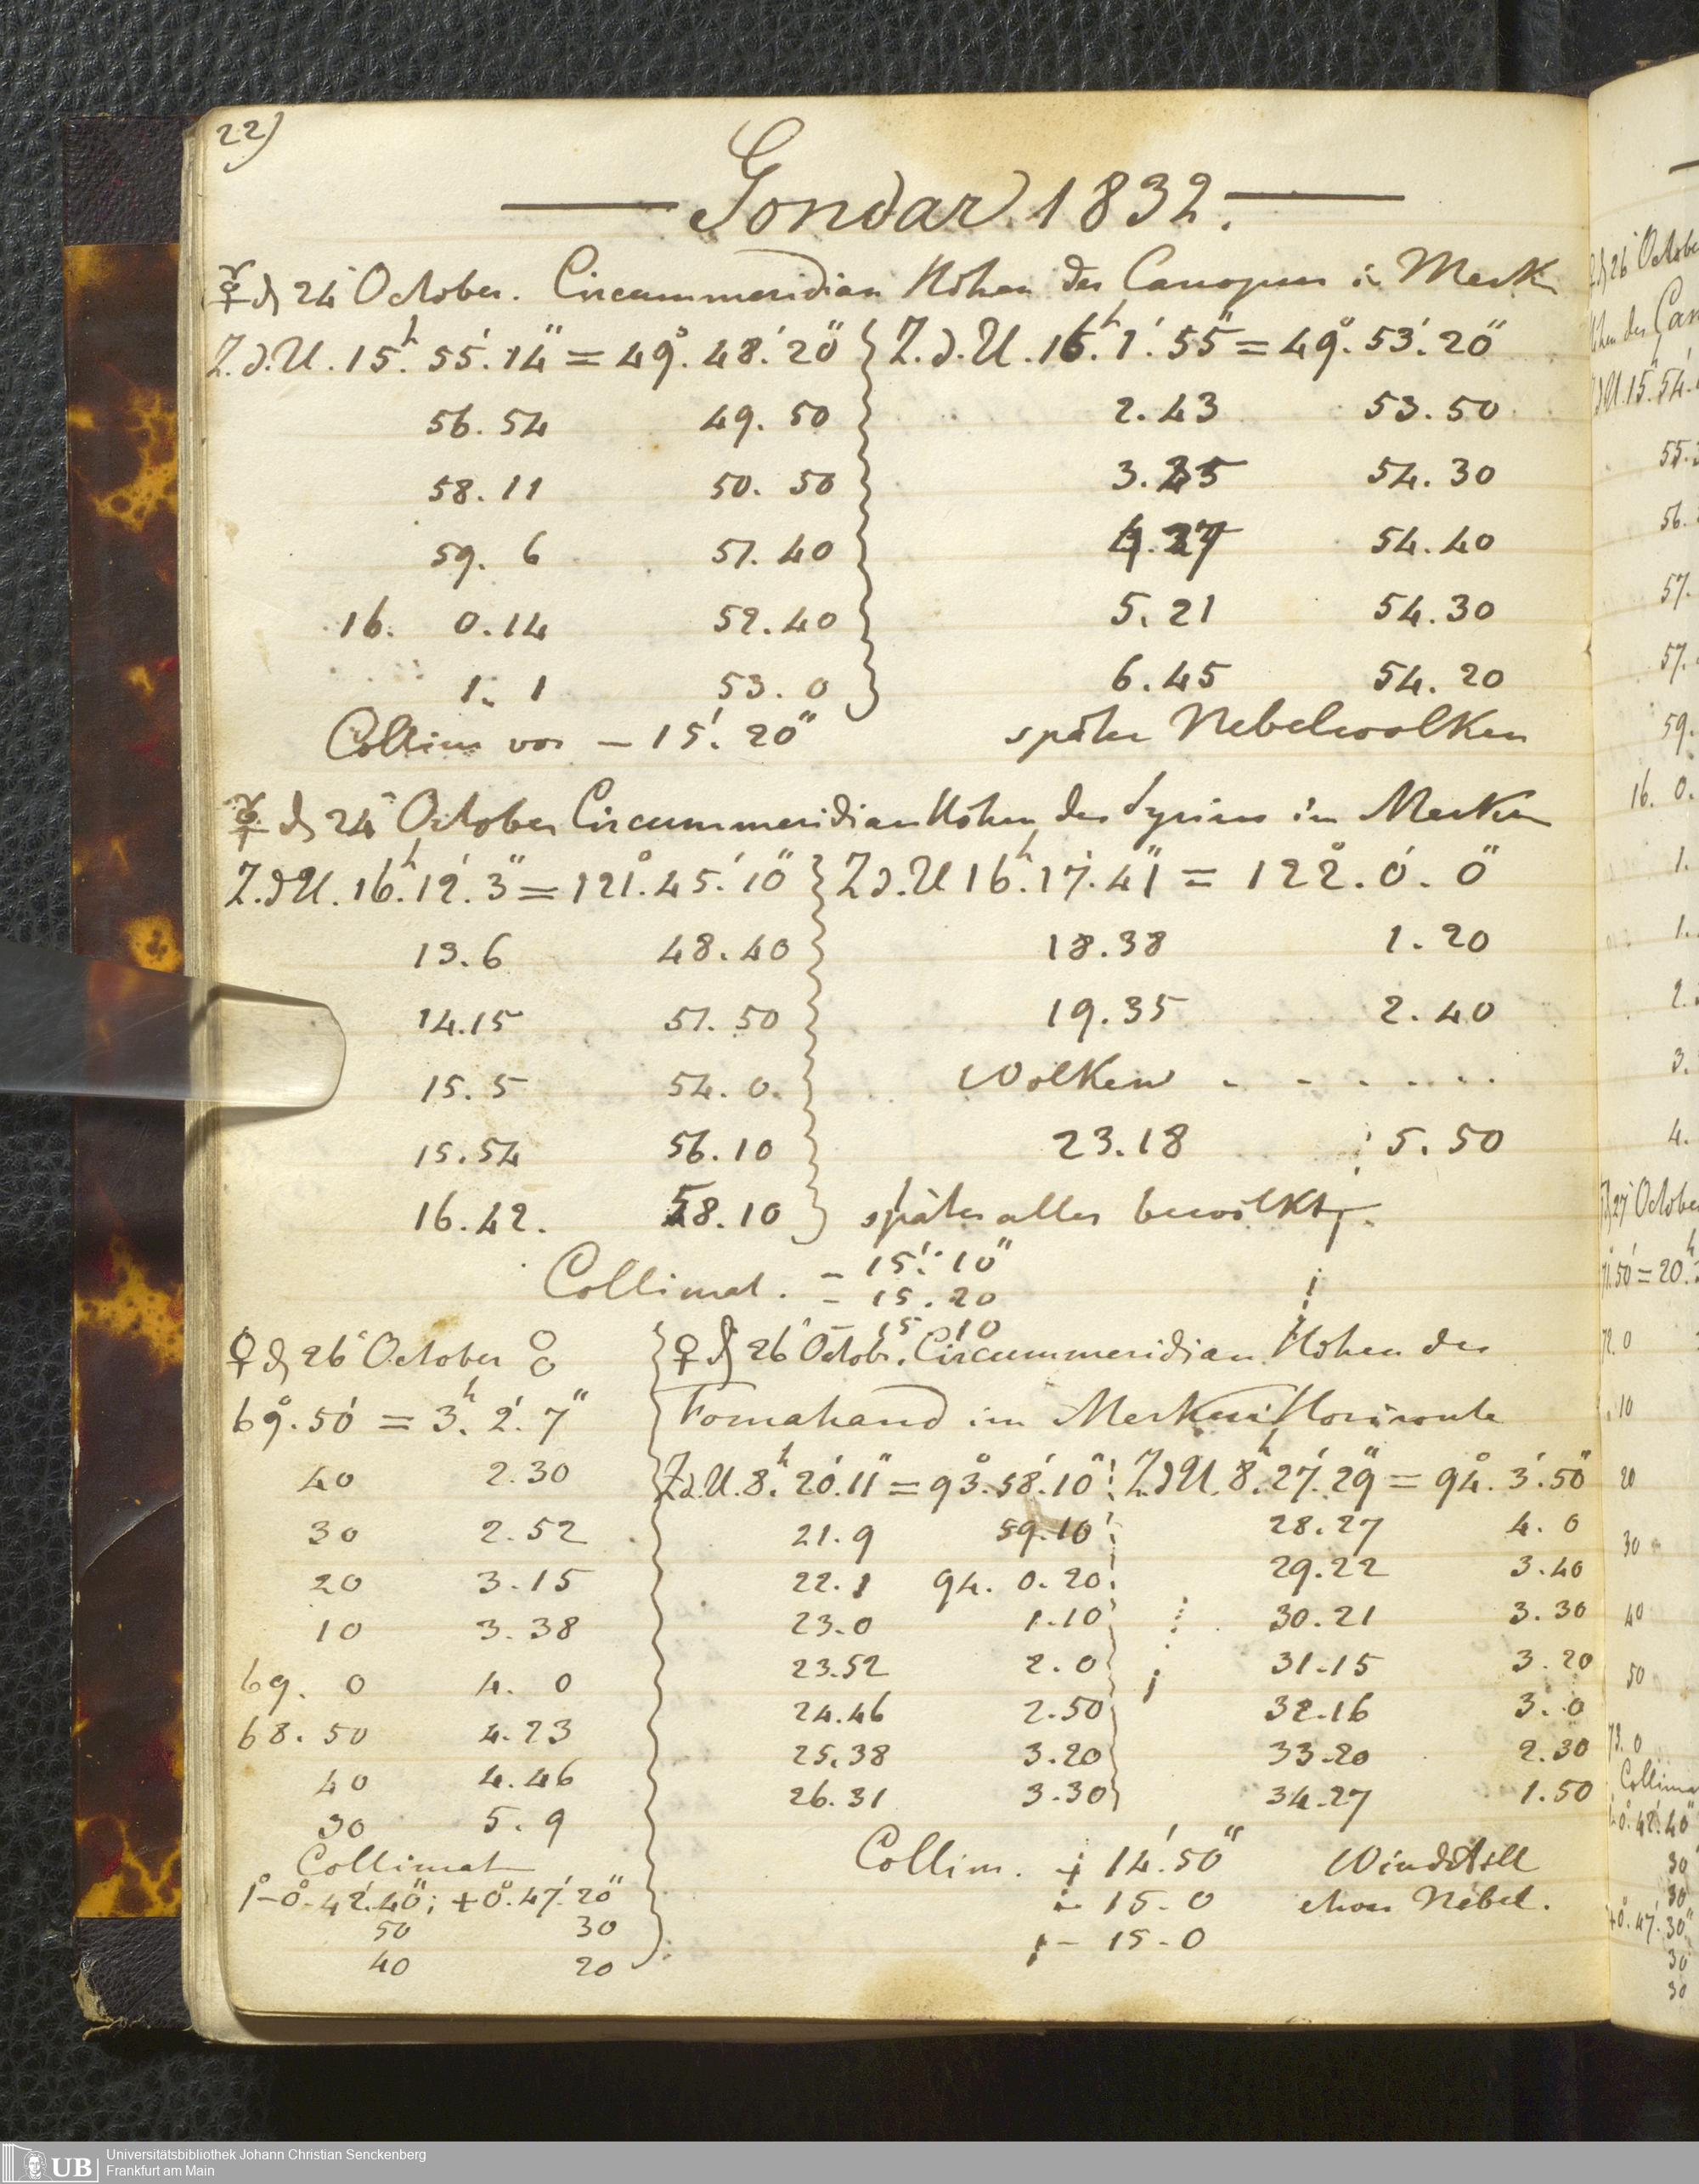 22)
Gondar 1832.
☿ d 24 October. Circummeridian Höhen des Canopus in Merk
Z.d.U. 15h. 55'. 14" = 49°. 48'. 20" Z.d.U. 16h. 1'. 55" = 49°. 53'. 20"
56. 54 49. 50 2. 43 53. 50
58. 11 50. 50 3. 35 54. 30
59. 6 51. 40 4. 27 54. 40
16. 0. 14 52. 40 5. 21 54. 30
1. 1 53. 0 6. 45 54. 20
Collim vor – 15'. 20" später Nebelwolken
☿ d 24 October Circummeridian Höhen des Syrius im Merkur
Z.d.U. 16h. 12'. 3" = 121°. 45'. 10" Z.d.U 16h. 17'. 41" = 122°. 0'. 0"
13. 6 48. 40 18. 38 1. 20
14. 15 51. 50 19. 35 2. 40
15. 5 54. 0. Wolken - - - - - -
15. 54 56. 10 23. 18 5. 50
16. 42. 58. 10 später alles bewölkt
– 15'. 10"
Collimat. – 15. 20
– 15 10
♀ d 26 October
69°. 50' = 3h. 2'. 7"
40 2. 30
30 2. 52
20 3. 15
10 3. 38
69. 0 4. 0
68. 50 4. 23
40 4. 46
30 5. 9
Collimat
1°–0°. 42'. 40"; +0°. 47'. 20"
50 30
40 20
♀ d 26 Octobr. Circummeridian Höhen des
Fomahand im Merkur Horizonte
Z.d.U. 8h. 20'. 11" = 93°. 58'. 10" Z.d.U. 8h. 27'. 29" = 94°. 3'. 50"
21. 9 59. 10 28. 27 4. 0
22. 1 94. 0. 20 29. 22 3. 40
23. 0 1. 10 30. 21 3. 30
23. 52 2. 0 31. 15 3. 20
24. 46 2. 50 32. 16 3. 0
25. 38 3. 20 33. 20 2. 30
26. 31 3. 30 34. 27 1. 50
Collim. – 14'. 50" Windstill
– 15. 0 etwas Nebel.
– 15. 0
26 October
des Can
Z.d.U. 15h. 54'.
55.
56.
57.
57.
59.
16. 0.
1.
1.
2.
3.
4.
27 October
71. 50' = 20h.
72. 0
10
20
30
40
50
73. 0
Collima
0°. 42'. 40"
30
30
+0°. 47'. 30"
30
30
UB Universitätsbibliothek Johann Christian Senckenberg
Frankfurt am Main